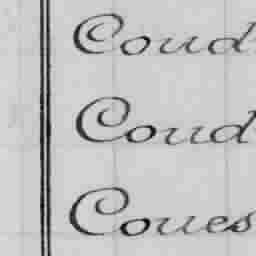 Coud
Coud
Coues